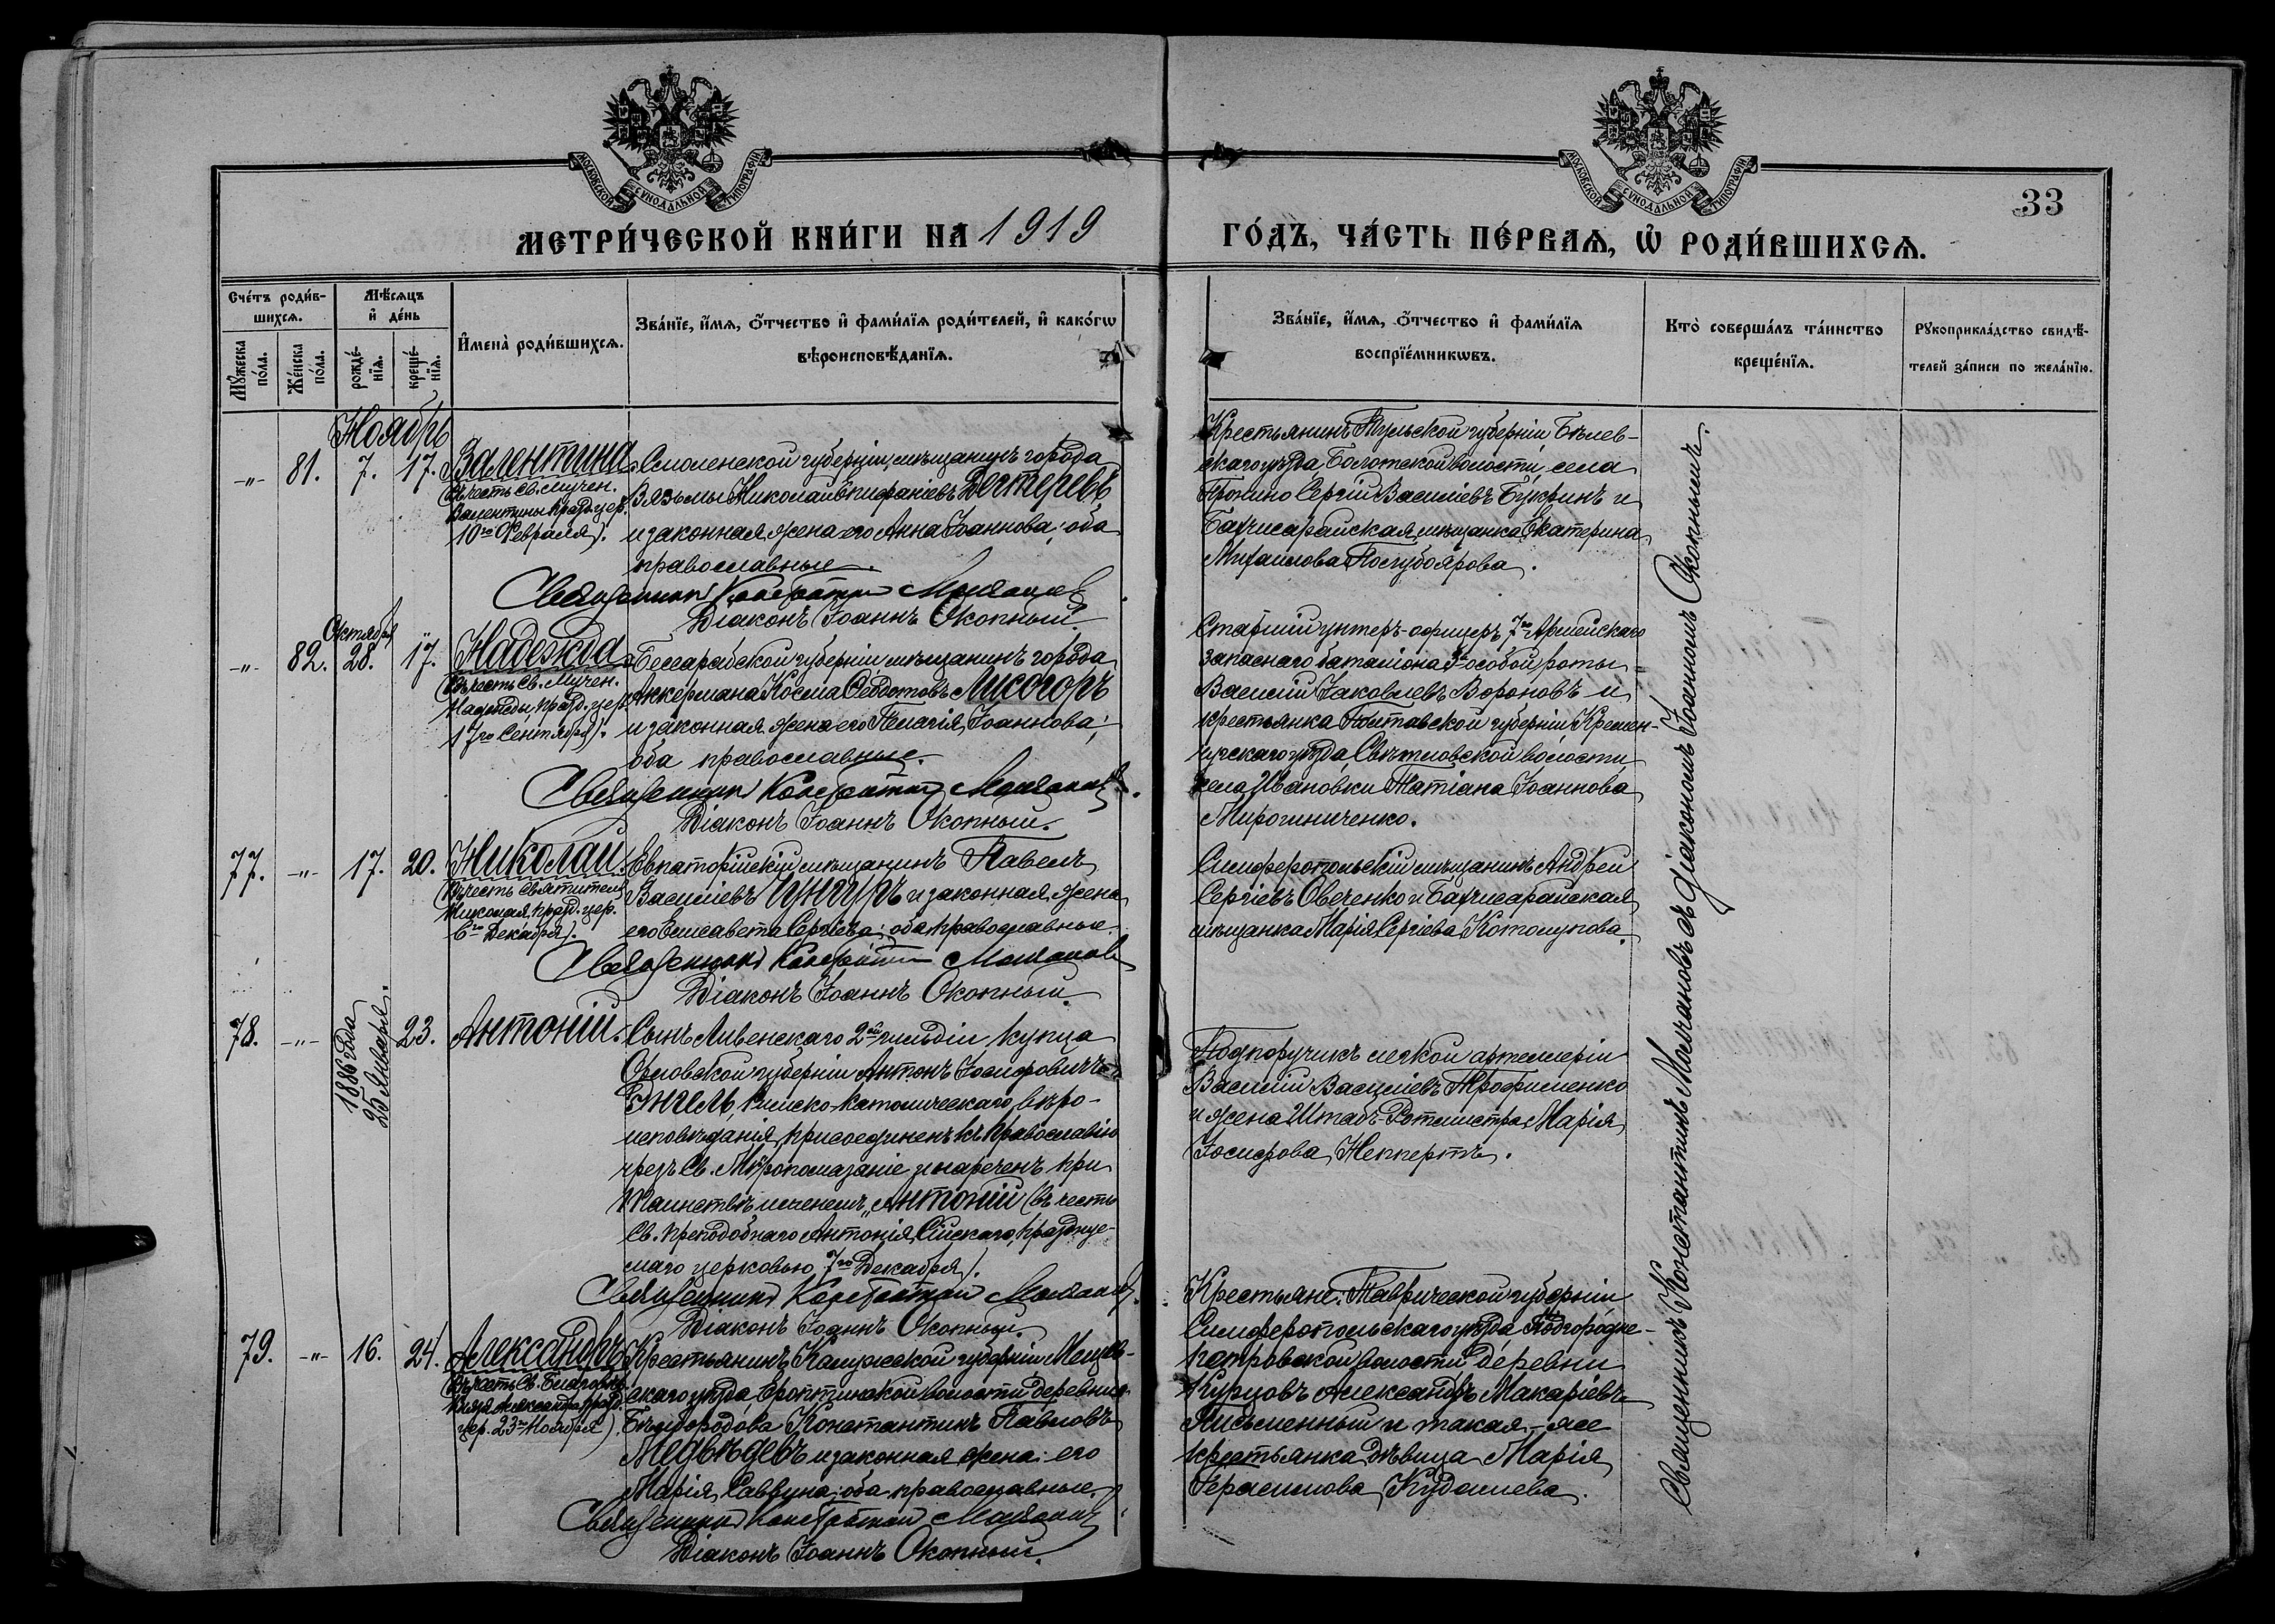 МОСКОВСКОЙ СѴНОДАЛЬНОЙ ТИПОГРАФІИ
МОСКОВСКОЙ СѴНОДАЛЬНОЙ ТИПОГРАФІИ
33
МЕТРИ́ЧЕСКОЙ КНИ́ГИ НА 1919
ГО́ДЪ, ЧА́СТЬ ПЕ́РВАѦ, Ѡ҆ РОДИ́ВШИХСѦ.
Сче́тъ роди́в-
шихсѧ.
Мѣ́сѧцъ
и҆ де́нь
Мꙋ́жеска
по́ла.
Же́нска
по́ла.
рожде́-
нїѧ.
креще́-
нїѧ.
И҆мена̀ роди́вшихсѧ.
Зва́нїе, и҆́мѧ, ѻ҆́тчество и҆ фами́лїѧ роди́телей, и҆ како́гѡ
вѣроисповѣ́данїѧ.
Зва́нїе, и҆́мѧ, ѻ҆́тчество и҆ фами́лїѧ
воспрїе́мникѡвъ.
Кто̀ соверша́лъ та́инство
креще́нїѧ.
Рꙋкоприкла́дство свидѣ́-
телей за́писи по жела́нїю.
Ноябрь
-„- 81. 7. 17. Валентина
(Въ честь Св. Мучен.
Валентины празд. цер.
10го Февраля).
Смоленской губерніи, мѣщанинъ города
Вязьмы Николай Епифаніевъ Дегтеревъ
и законная жена его Анна Іоаннова; оба
православные.
Священникъ Константин Молчановъ
Діаконъ Іоаннъ Окопный
Крестьянинъ Тульской губерніи Бѣлев-
скаго уѣзда, Болотской волости, села
Пронино Сергій Василіевъ Букринъ и
Бахчисарайская мѣщанка Екатерина
Михаилова Послубоярова.
Октября
-„- 82. 28. 17. Надежда
(Въ честь Св. Мучен.
Надежды, празд. цер.
17го Сентября).
Бессарабской губерніи мѣщанинъ города
Аккермана Косма Ѳеодотовъ Лисогоръ
и законная жена его Пелагія Іоаннова;
оба православные.
Священникъ Константин Молчановъ.
Діаконъ Іоаннъ Окопный.
Старшій унтеръ-офицеръ 7го Армейскаго
запаснаго баталіона особой роты
Василій Іаковлевъ Вороновъ и
крестьянка Полтавской губерніи Кремен-
чугскаго уѣзда, Свѣтловской волости
села Ивановки Татіана Іоаннова
Мирошниченко.
77. -„- 17. 20. Николай
(Въ честь Святителя
Николая, празд. цер.
6го Декабря).
Евпаторійскій мѣщанинъ Павелъ
Василіевъ Унгуръ и законная жена
его Елисавета Сергіева; оба православные.
Священникъ Константин Молчановъ
Діаконъ Іоаннъ Окопный.
Симферопольскій мѣщанинъ Андрей
Сергіевъ Овеченко и Бахчисарайская
мѣщанка Марія Сергіева Котолупова.
78. -„- 1886 года 25 Января. 23. Антоній.
Сынъ Ливенскаго 2ой гильдіи купца
Орловской губерніи Антонъ Іосифовичъ
Енгель Римско-Католическаго вѣро-
исповѣданія, присоединенъ къ Православію
чрезъ Св. Мѵропомазаніе и нареченъ при
Таинствѣ именемъ „Антоній (въ честь
Св. преподобнаго Антонія Сійскаго, праздну-
маго церковью 7го Декабря).
Священникъ Константин Молчановъ.
Діаконъ Іоаннъ Окопный.
Подпоручикъ легкой артиллеріи
Василій Василіевъ Трофименко
и жена Штабъ-Ротмистра Марія
Іосифова Неппертъ.
79. -„- 16. 24. Александръ
(Въ честь Св. Благовѣр.
Князя Александра, празд.
цер. 23го Ноября).
Крестьянинъ Калужской губерніи Мещов-
скаго уѣзда, волости деревни
Бѣлгородова Константинъ Павловъ
Медвѣдевъ и законная жена его
Марія Саввина; оба православные.
Священникъ Константин Молчановъ
Діаконъ Іоаннъ Окопный.
Крестьяне: Таврической губерніи
Симферопольскаго уѣзда Подгородне-
петровской волости деревни
Курцовъ Александръ Макаріевъ
Письменный и такая-же
крестьянка дѣвица Марія
Герасимова Кудашева.
Священникъ Константинъ Молчановъ съ діакономъ Іоанномъ Окопнымъ.